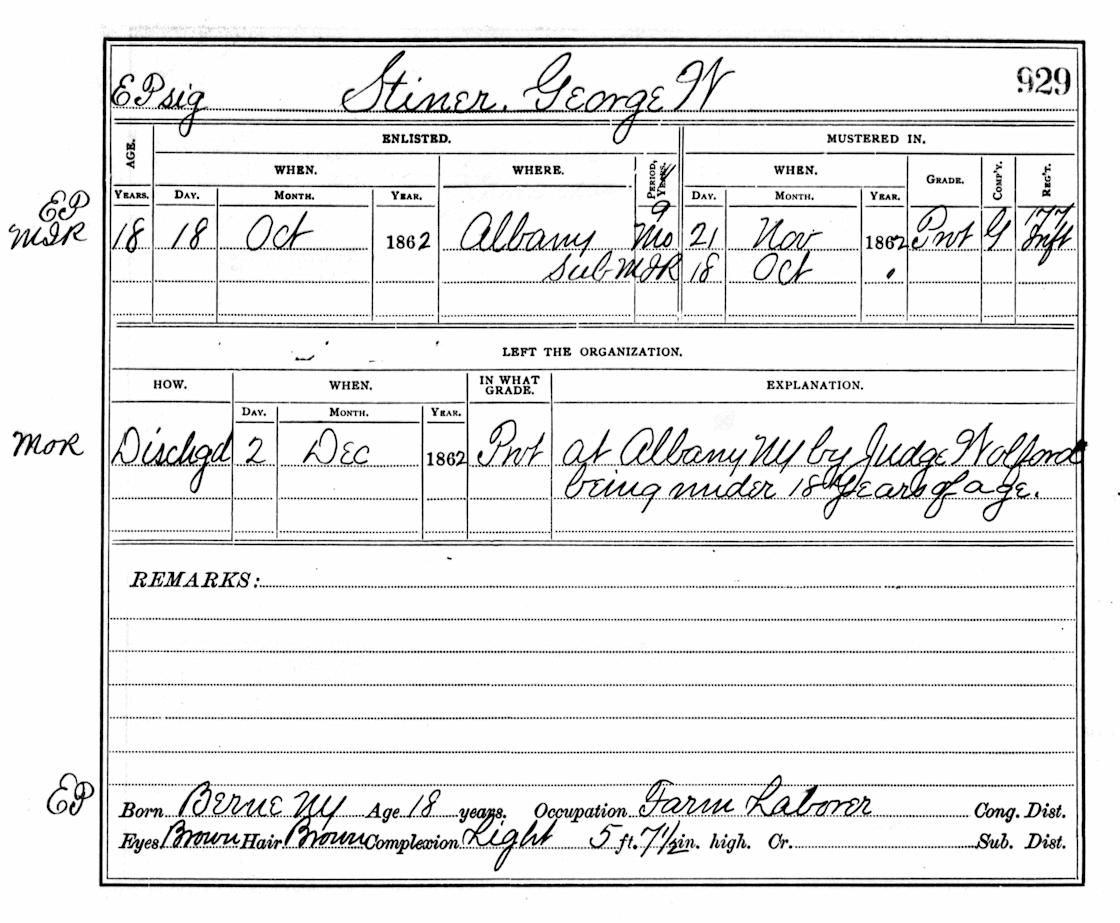 EP sig Stiner. George W 929
AGE. ENLISTED. MUSTERED IN.
WHEN. WHERE. PERIOD, YEARS. WHEN. GRADE. COMP'Y. REG'T.
YEARS. DAY. MONTH. YEAR. DAY. MONTH. YEAR.
EP
MIR 18 18 Oct 1862 Albany 9 Mo 21 Nov 1862 Pvt G 177 Inft
sub MIR 18 Oct
LEFT THE ORGANIZATION.
HOW. WHEN. IN WHAT GRADE. EXPLANATION.
DAY. MONTH. YEAR.
MOR Dischgd 2 Dec 1862 Pvt at Albany NY by Judge Wolford
being under 18 Years of age.
REMARKS:
EP Born Berne NY Age 18 years. Occupation Farm Laborer Cong. Dist.
Eyes Brown Hair Brown Complexion Light 5 ft. 7 1/2 in. high. Cr. Sub. Dist.